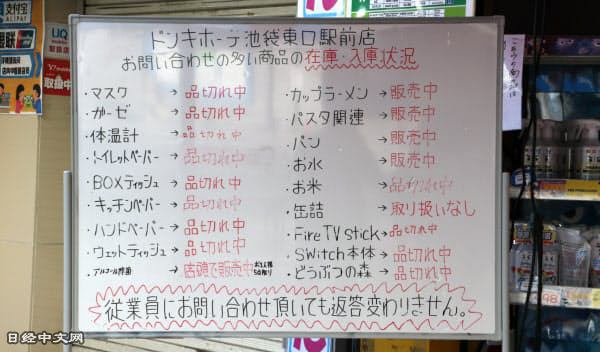 ドンキホーテ池袋東口駅前店
お問い合わせの多い商品の在庫・入庫状況
・マスク → 品切れ中
・ガーゼ → 品切れ中
・体温計 → 品切れ中
・トイレットペーパー → 品切れ中
・BOXティッシュ → 品切れ中
・キッチンペーパー → 品切れ中
・ハンドペーパー → 品切れ中
・ウェットティッシュ → 品切れ中
・アルコール除菌 → 店頭で販売中
・カップラーメン → 販売中
・パスタ関連 → 販売中
・パン → 販売中
・お水 → 販売中
・お米 → 品切れ中
・缶詰 → 取り扱いなし
・Fire TV stick → 品切れ中
・SWitch本体 → 品切れ中
・どうぶつの森 → 品切れ中
従業員にお問い合わせ頂いても返答変わりません。
支付宝
UQ
取扱中
日经中文网